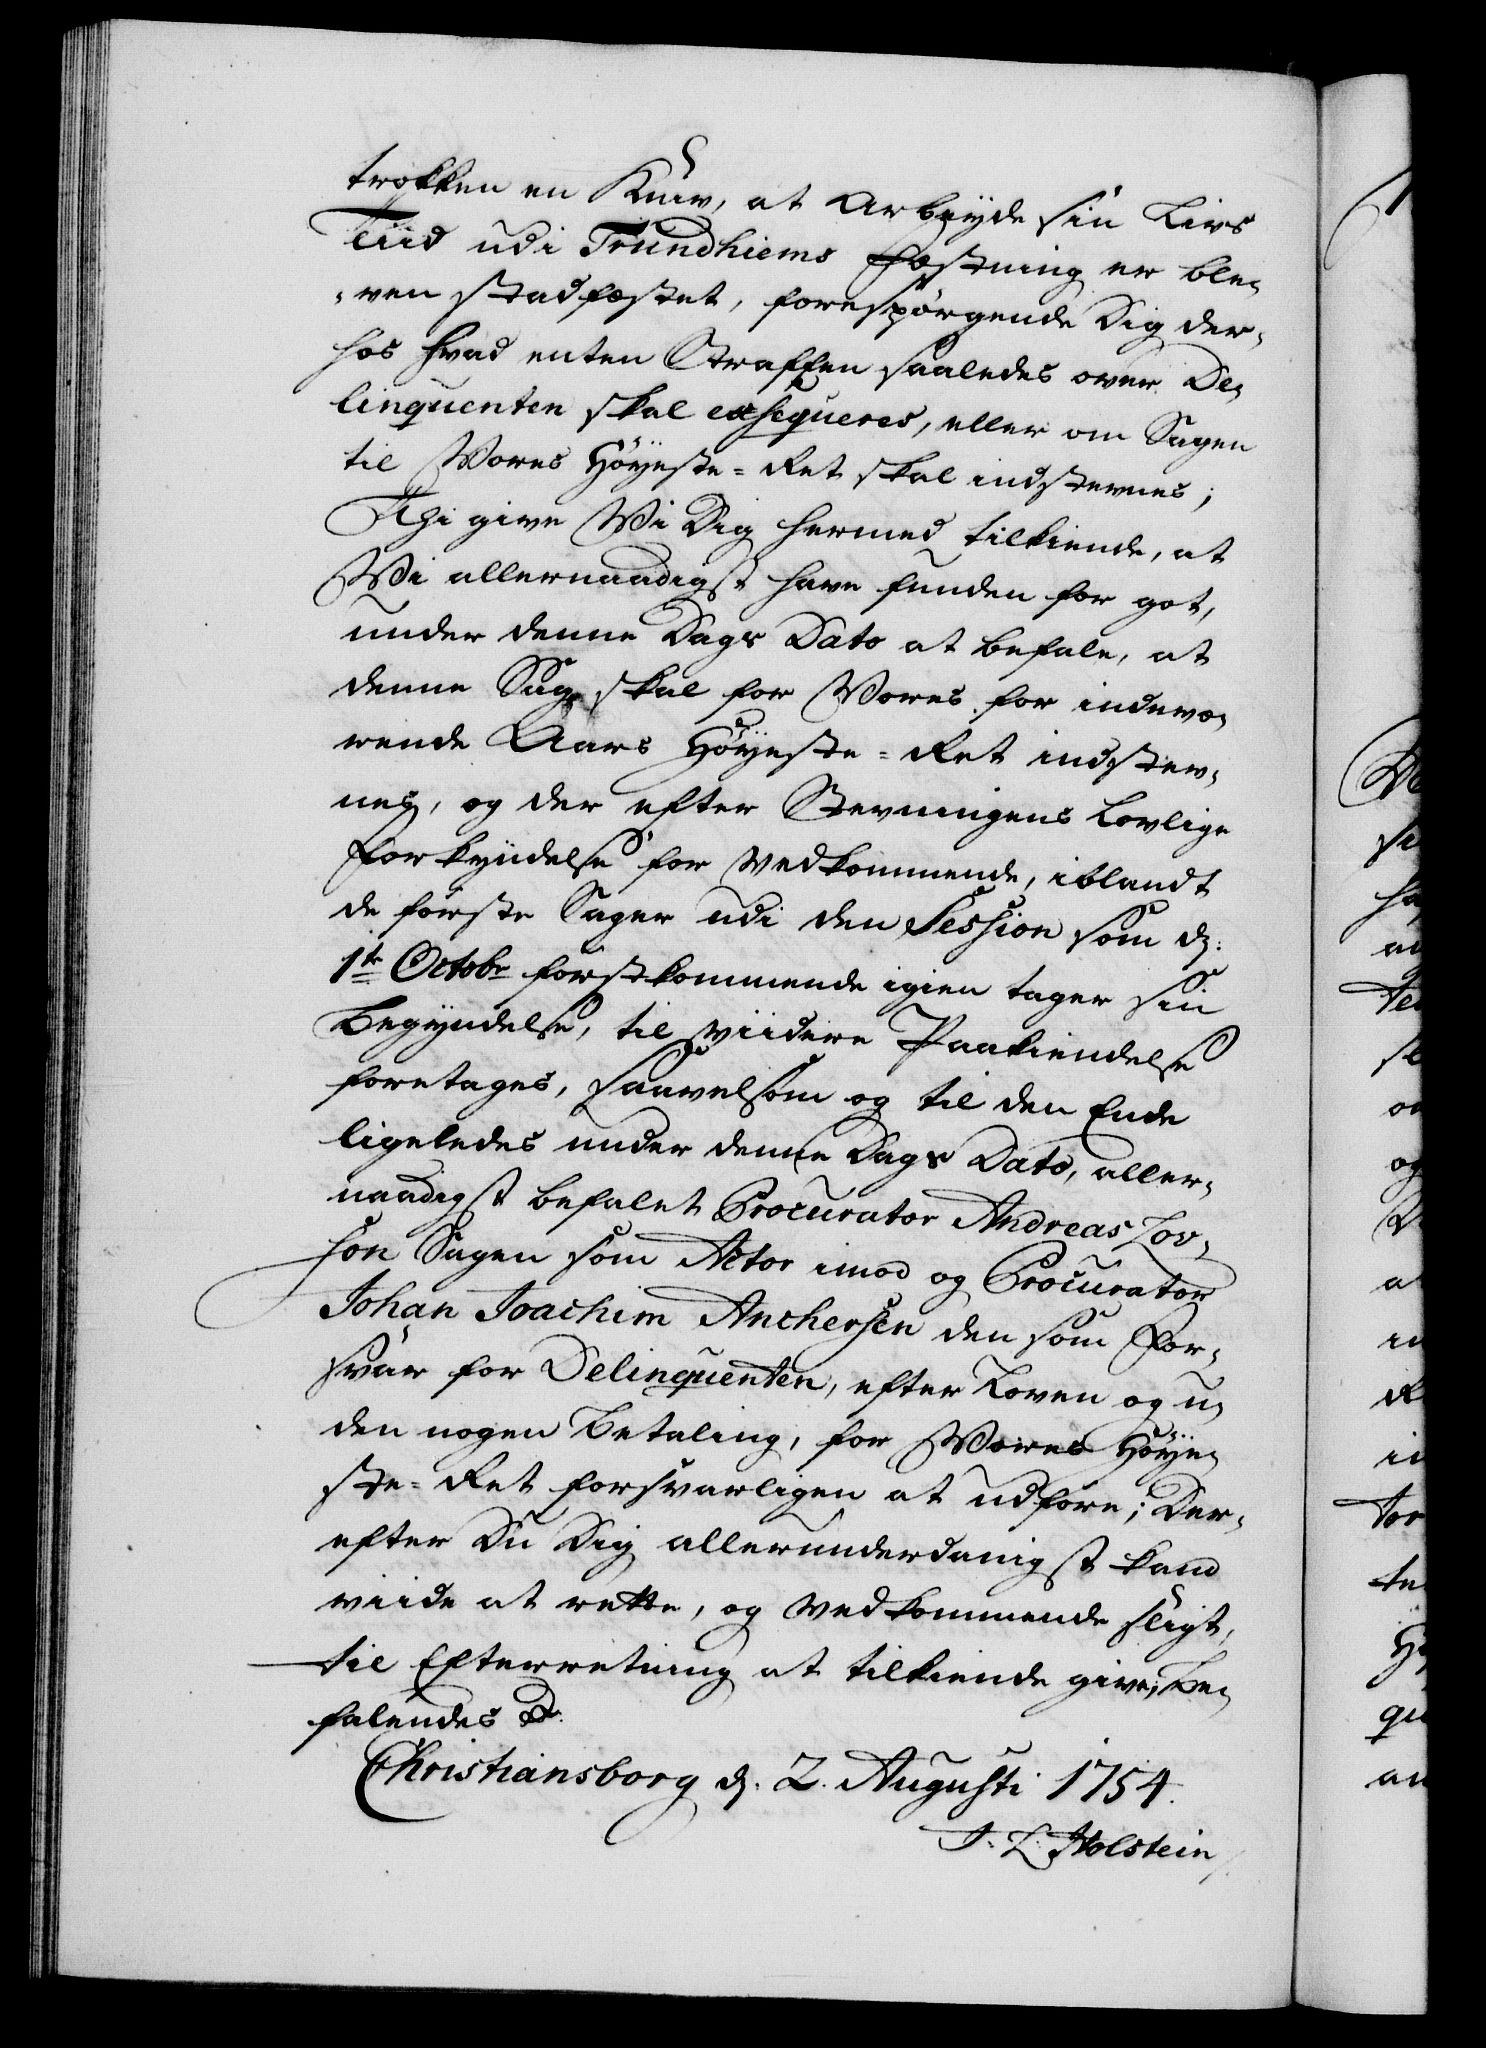 trokken en Kniv, at Arbeyde sin Livs
Tiid udi Trundhiems Fæstning er ble¬
„ven stadfæstet, forespörgende Dig der¬
hos hvad enten Straffen saaledes over De¬
linquenten skal exsequeres, eller om Sagen
til Vores Höyeste=Ret skal indstevnes;
Thi give Wi Dig hermed tilkiende, at
Wi allernaadigst have funden for got,
under denne Dags Dato at befale, at
denne Sag skal for Vores for indevæ¬
rende Aars Höyeste=Ret indstev¬
nes, og der efter Stevningens Lovlige
Forkyndelse for vedkommende, iblandt
de förste Sager udi den Session som d:
1te Octobr förstkommende igien tager sin
Begyndelse, til viidere Paakiendelse
foretages, saavelsom og til den Ende
ligeledes under denne Dags Dato, aller¬
naadigst befalet Procurator Andreas Lov¬
son Sagen som Actor imod og Procurator
Johan Joachim Anchersen den som For¬
svar for Delinquenten, efter Loven og u¬
den nogen Betaling, for Vores Höye¬
ste=Ret forsvarligen at udföre; Der¬
efter Du Dig allerunderdanigst kand
viide at rette, og vedkommende sligt,
til Efterretning at tilkiende give; Be¬
falendes
Christiansborg d. 2. Augusti 1754.
J. L. Holstein